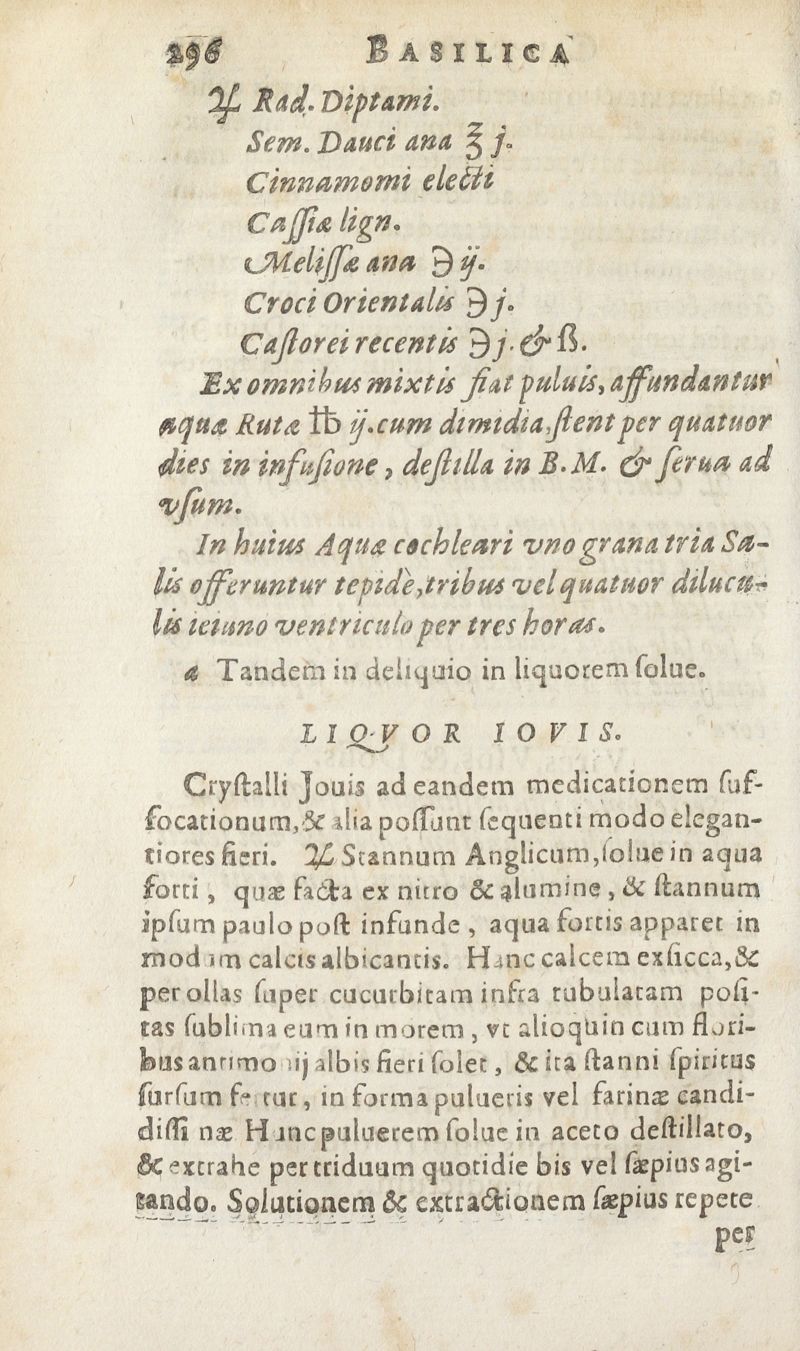 296 BASILICA
♃ Rad. Diptami.
Sem. Dauci ana ℥ j.
Cinnamomi electi
Caſſiæ lign.
Meliſſæ ana ℈ ij.
Croci Orientalis ℈ j.
Caſtorei recentis ℈ j. & ß.
Ex omnibus mixtis fiat puluis, affundantur
aquæ Rutæ ℔ ij. cum dimidia, ſtent per quatuor
dies in infuſione, deſtilla in B. M. & ſerua ad
vſum.
In huius Aquæ cochleari vno grana tria Sa-
lis offeruntur tepidè, tribus vel quatuor dilucu-
lis ieiuno ventriculo per tres horas.
a Tandem in deliquio in liquorem ſolue.
LIQVOR IOVIS.
Cryſtalli Jouis ad eandem medicationem ſuf-
focationum, & alia poſſunt ſequenti modo elegan-
tiores fieri. ♃ Stannum Anglicum, ſolue in aqua
forti, quæ facta ex nitro & alumine, & ſtannum
ipſum paulo poſt infunde, aqua fortis apparet in
modum calcis albicantis. Hanc calcem exſicca, &
per ollas ſuper cucurbitam infra tubulatam poſi-
tas ſublima eum in morem, vt alioquin cum flori-
bus antimonij albis fieri ſolet, & ita ſtanni ſpiritus
ſurſum fertur, in forma pulueris vel farinæ candi-
diſſi næ Hanc puluerem ſolue in aceto deſtillato,
& extrahe per triduum quotidie bis vel ſæpius agi-
tando. Solutionem & extractionem ſæpius repete
per